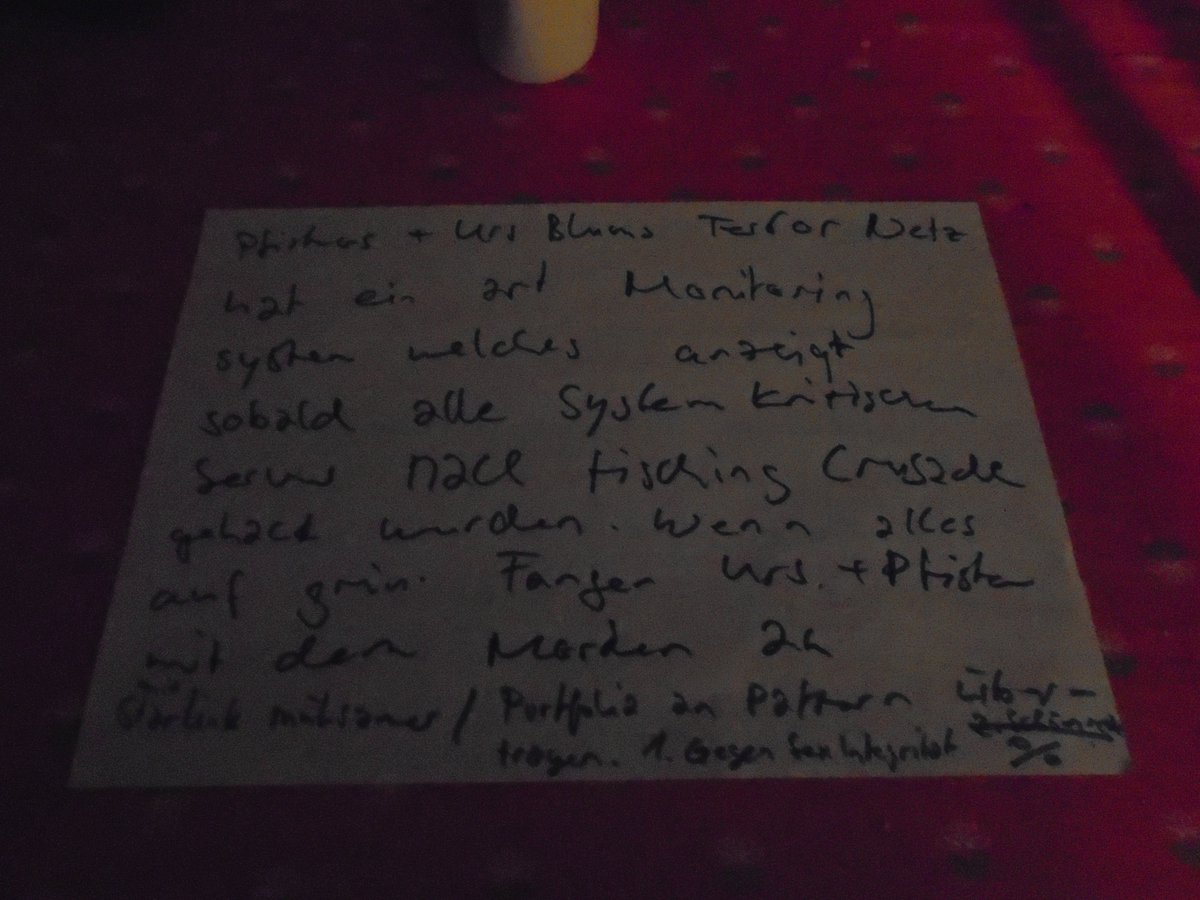 Pfisters + Urs Blums Terror Netz
hat ein art Monitoring
system welches anzeigt
sobald alle System kritischen
Server nach fisching Crusade
gehackt wurden. Wenn alles
auf grün. Fangen Urs. + Pfister
mit dem Morden an
/ Portfolio an Pattern über-
tragen. 1. Gegen